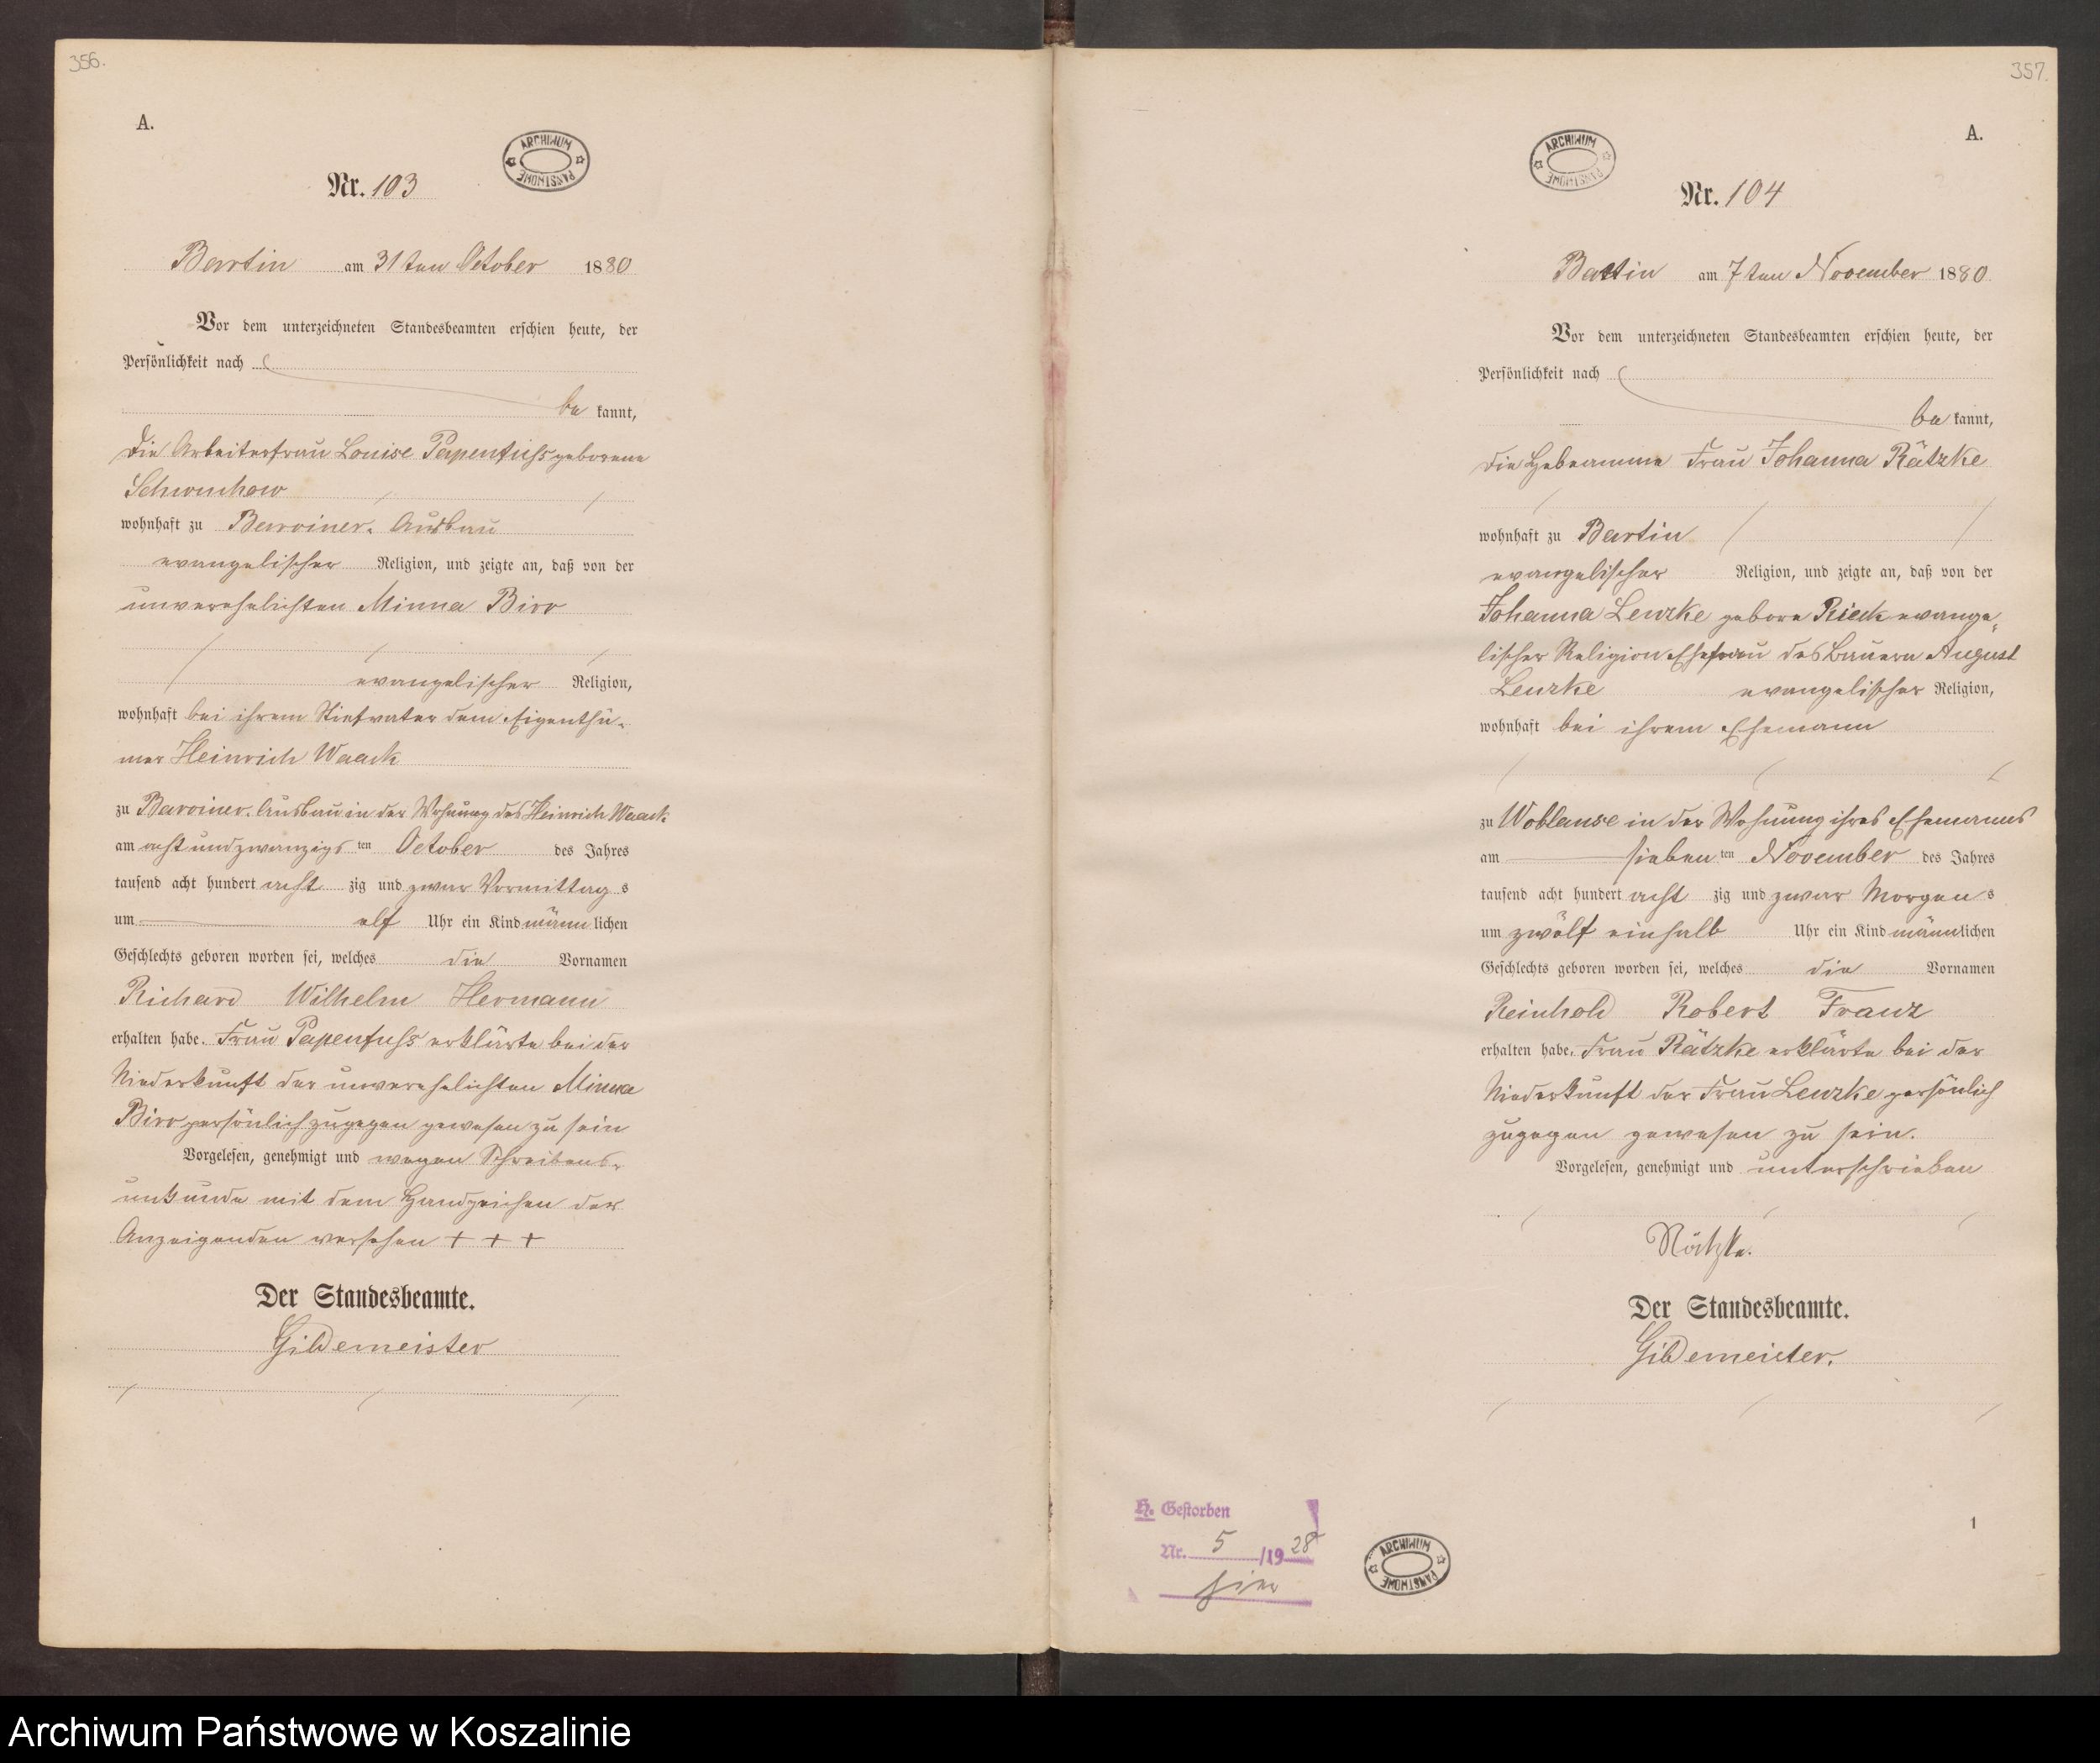 356.
A.
ARCHIWUM PAŃSTWOWE
Nr. 103
Bartin am 31ten October 1880
Vor dem unterzeichneten Standesbeamten erschien heute, der
Persönlichkeit nach
be kannt,
die Arbeiterfrau Louise Papenfuss geborene
Schwuchow
wohnhaft zu Barviner-Ausbau
evangelischer Religion, und zeigte an, daß von der
unverehelichten Minna Birr
evangelischer Religion,
wohnhaft bei ihrem Stiefvater dem Eigenthü-
mer Heinrich Waack
zu Barviner-Ausbau in der Wohnung des Heinrich Waack
am acht und zwanzigs ten October des Jahres
tausend acht hundert acht zig und zwar Vormittag s
um elf Uhr ein Kind männ lichen
Geschlechts geboren worden sei, welches die Vornamen
Richard Wilhelm Hermann
erhalten habe. Frau Papenfuss erklärte bei der
Niederkunft der unverehelichten Minna
Birr persönlich zugegen gewesen zu sein
Vorgelesen, genehmigt und wegen Schreibens-
unkunde mit dem Handzeichen der
Anzeigenden versehen + + +
Der Standesbeamte.
Gildemeister
357.
A.
ARCHIWUM PAŃSTWOWE
Nr. 104
Bartin am 7ten November 1880
Vor dem unterzeichneten Standesbeamten erschien heute, der
Persönlichkeit nach
be kannt,
die Hebeamme Frau Johanna Rätzke
wohnhaft zu Bartin
evangelischer Religion, und zeigte an, daß von der
Johanna Lenzke gebore Rieck evange-
lischer Religion Ehefrau des Bauern August
Lenzke evangelischer Religion,
wohnhaft bei ihrem Ehemann
zu Woblanse in der Wohnung ihres Ehemanns
am sieben ten November des Jahres
tausend acht hundert acht zig und zwar Morgen s
um zwölf einhalb Uhr ein Kind männlichen
Geschlechts geboren worden sei, welches die Vornamen
Reinhold Robert Franz
erhalten habe. Frau Rätzke erklärte bei der
Niederkunft der Frau Lenzke persönlich
zugegen gewesen zu sein.
Vorgelesen, genehmigt und unterschrieben
Rätzke.
Der Standesbeamte.
Gildemeister.
H. Gestorben
Nr. 5 /1928
hier
ARCHIWUM PAŃSTWOWE
1
Archiwum Państwowe w Koszalinie